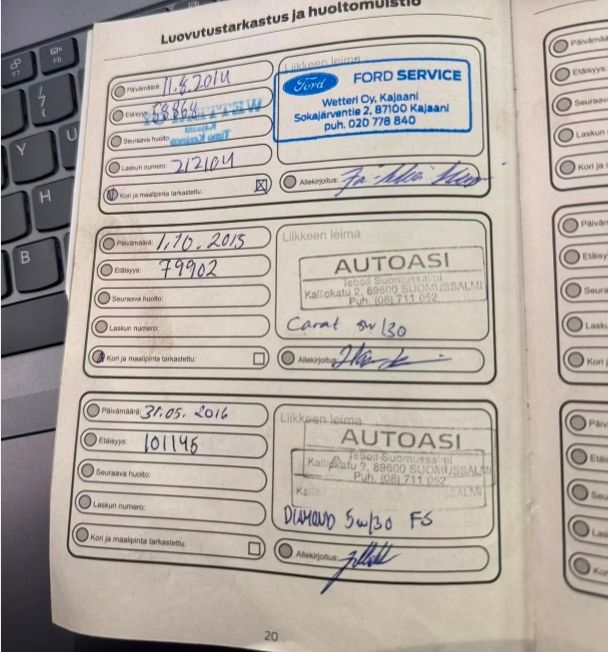 Luovutustarkastus ja huoltomuistio
Päivämäärä: 11.8.2014
Etäisyys: 58868
Seuraava huolto:
Laskun numero: 212104
Kori ja maalipinta tarkastettu:
Liikkeen leima
Ford
FORD SERVICE
Wetteri Oy, Kajaani
Sokajärventie 2, 87100 Kajaani
puh. 020 778 840
Allekirjoitus:
Päivämäärä: 1.10.2015
Etäisyys: 79902
Seuraava huolto:
Laskun numero:
Kori ja maalipinta tarkastettu:
Liikkeen leima
AUTOASI
Teboil Suomussalmi
Kalliokatu 2, 89600 SUOMUSSALMI
Puh. (08) 711 052
Carat 5w/30
Allekirjoitus:
Päivämäärä: 31.05.2016
Etäisyys: 101145
Seuraava huolto:
Laskun numero:
Kori ja maalipinta tarkastettu:
Liikkeen leima
AUTOASI
Teboil Suomussalmi
Kalliokatu 2, 89600 SUOMUSSALMI
Puh. (08) 711 052
DIAMOND 5w/30 FS
Allekirjoitus:
20
F7
F8
7
/
Y
U
H
B
Päivämäärä
Etäisyys:
Seuraava
Laskun
Kori ja
Päivämä
Etäisy
Seura
Lasku
Kori j
Päiv
Etäi
Seu
Las
Kor